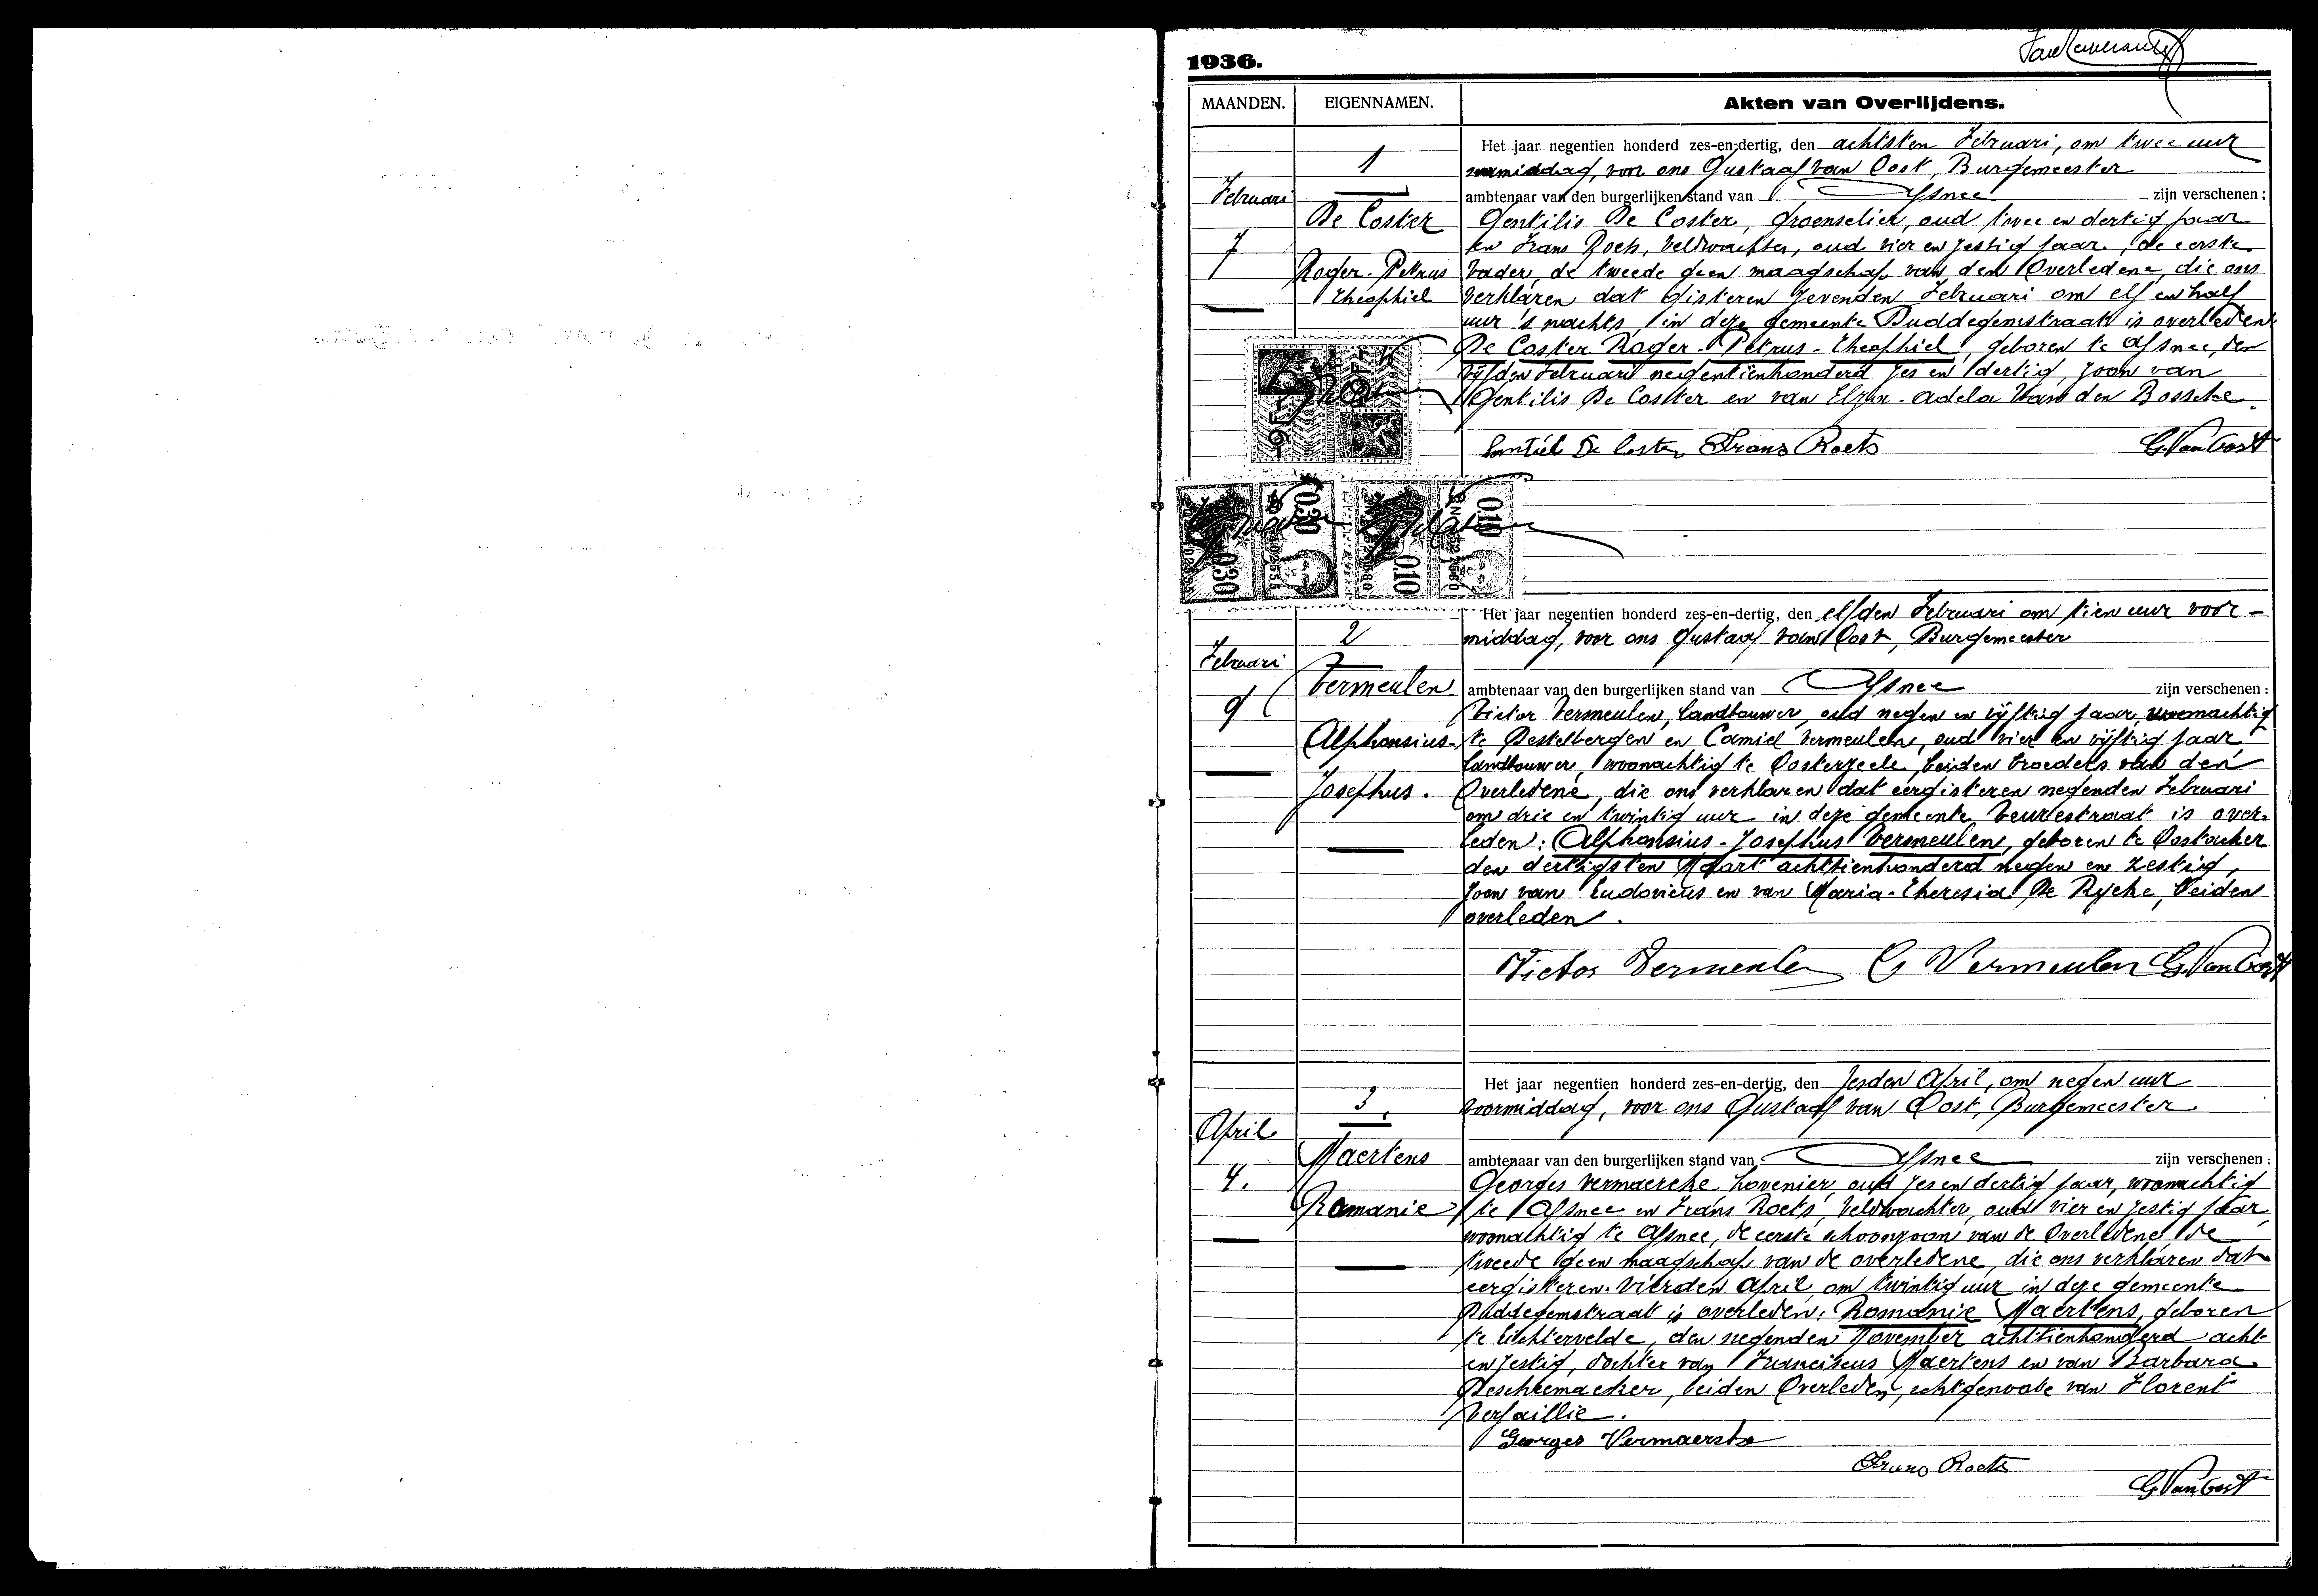 1936.
MAANDEN. EIGENNAMEN. Akten van Overlijdens.
Het jaar negentien honderd zes-en-dertig, den achtsten Februari, om twee uur
1
namiddag, voor ons Gustaaf van Oost, Burgemeester
Februari
ambtenaar van den burgerlijken stand van Afsnee zijn verschenen :
De Coster
Gentilis De Coster, groenselier, oud twee en dertig jaar
7
en Frans Roets, veldwachter, oud vier en zestig jaar, de eerste
Roger-Petrus
vader, de tweede geen maagschap van den Overledene, die ons
Theophiel
verklaren dat gisteren zevenden Februari om elf en half
uur 's nachts, in deze gemeente Duddegemstraat is overleden
De Coster Roger-Petrus-Theophiel, geboren te Afsnee, den
vijfden Februari negentienhonderd zes en dertig, zoon van
Gentilis De Coster en van Elza-Adela Van den Bossche.
Gentiel De Coster Frans Roets G. Van Oost
0.30 0.10
0.30 0.10
Het jaar negentien honderd zes-en-dertig, den elfden Februari om tien uur voor-
2
middag, voor ons Gustaaf van Oost, Burgemeester
Februari
Vermeulen
ambtenaar van den burgerlijken stand van Afsnee zijn verschenen :
9
Victor Vermeulen, landbouwer, oud negen en vijftig jaar, woonachtig
Alphonsius-
te Destelbergen en Camiel Vermeulen, oud vier en vijftig jaar,
landbouwer, woonachtig te Oosterzeele, beiden broeders van den
Josephus.
Overledene, die ons verklaren dat eergisteren negenden Februari
om drie en twintig uur in deze gemeente Beurestraat is over-
leden: Alphonsius-Josephus Vermeulen, geboren te Oostacker
den dertigsten Maart achttienhonderd negen en zestig,
zoon van Ludovicus en van Maria-Theresia De Rycke, beiden
overleden.
Victor Vermeulen C Vermeulen G. Van Oost
Het jaar negentien honderd zes-en-dertig, den zesden April, om negen uur
3.
voormiddag, voor ons Gustaaf van Oost, Burgemeester
April
Maertens
ambtenaar van den burgerlijken stand van Afsnee zijn verschenen :
4.
Georges Vermaercke, hovenier, oud zes en dertig jaar, woonachtig
Romanie
te Afsnee en Frans Roets, veldwachter, oud vier en zestig jaar,
woonachtig te Afsnee, de eerste schoonzoon van de Overledene, de
tweede geen maagschap van de overledene, die ons verklaren dat
eergisteren vierden April, om twintig uur in deze gemeente
Duddegemstraat is overleden: Romanie Maertens, geboren
te Lichtervelde, den negenden November achttienhonderd acht
en zestig, dochter van Franciscus Maertens en van Barbara
Descheemaeker, beiden Overleden, echtgenoote van Florent
Versaillie.
Georges Vermaercke
Frans Roets
G. Van Oost